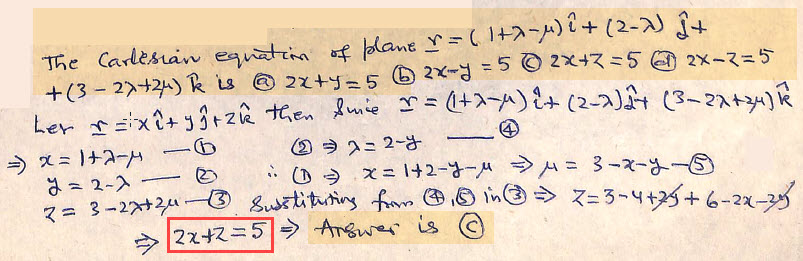 The Cartesian equation of plane r = (1+λ-μ)î + (2-λ)ĵ +
+(3-2λ+2μ)k̂ is ⓐ 2x+y=5 ⓑ 2x-y=5 ⓒ 2x+z=5 ⓓ 2x-z=5
Let r = xî+yĵ+zk̂ then since r = (1+λ-μ)î + (2-λ)ĵ + (3-2λ+2μ)k̂
⇒ x = 1+λ-μ —① ② ⇒ λ = 2-y —④
y = 2-λ —② ∴ ① ⇒ x = 1+2-y-μ ⇒ μ = 3-x-y —⑤
z = 3-2λ+2μ —③ Substituting from ④,⑤ in ③ ⇒ z = 3-4+2y+6-2x-2y
⇒ 2x+z=5 ⇒ Answer is ⓒ